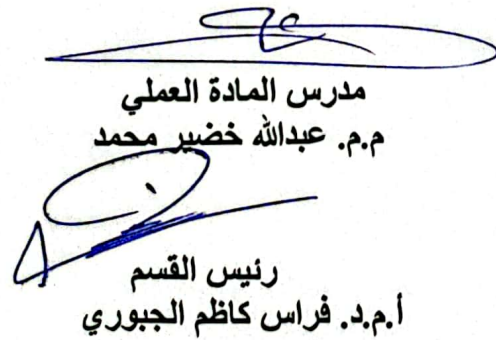 مدرس المادة العملي
م.م. عبدالله خضير محمد
رئيس القسم
أ.م.د. فراس كاظم الجبوري